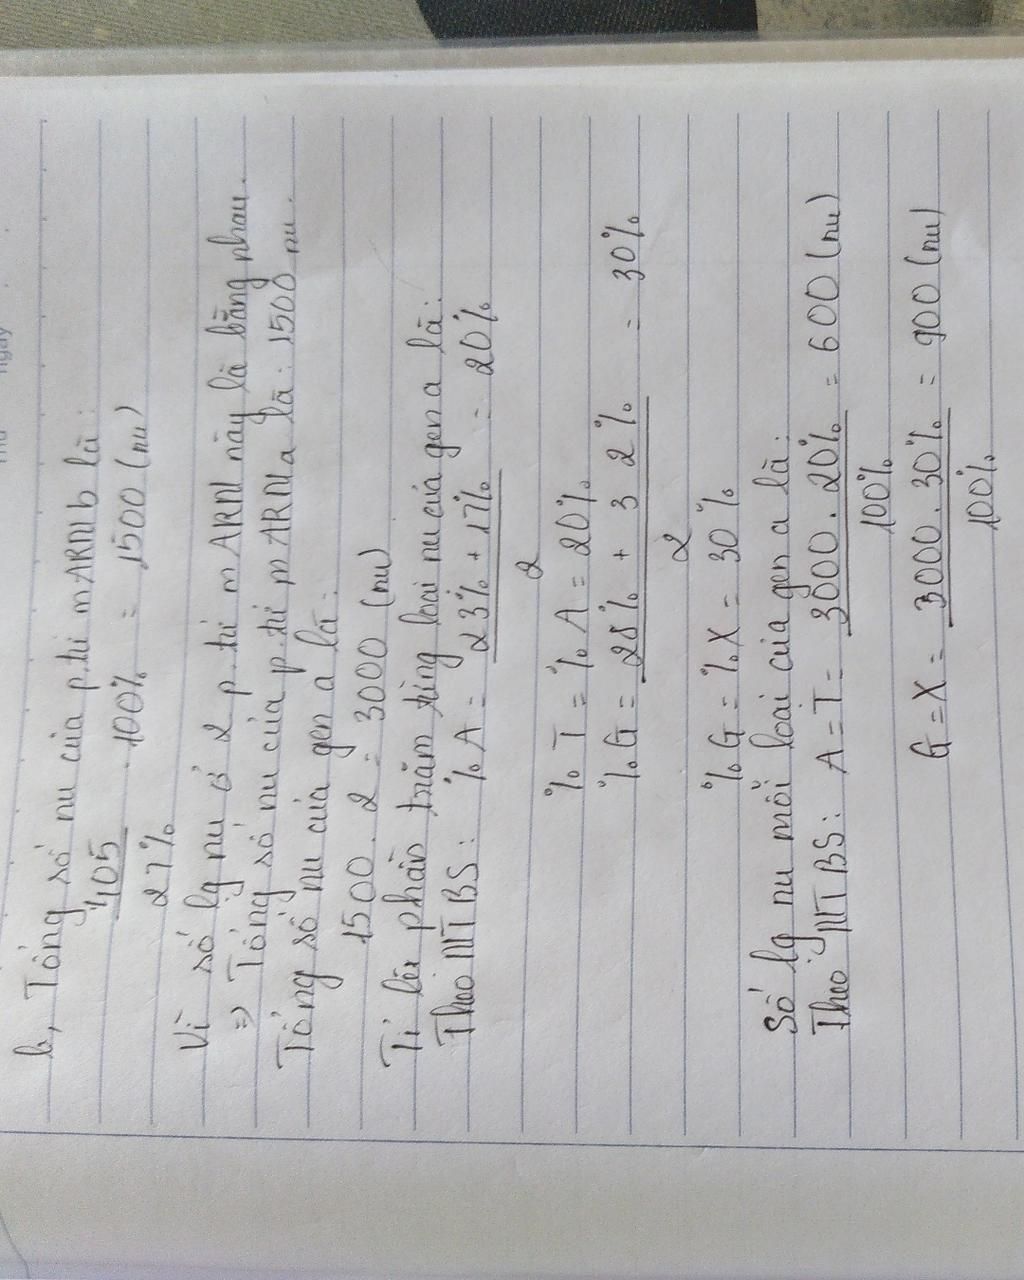 b, Tổng số nu của p.tử mARN b là:
405 . 100% = 1500 (nu)
27%
Vì số lg nu ở 2 p.tử mARN này là bằng nhau.
=> Tổng số nu của p.tử mARN a là: 1500 nu.
Tổng số nu của gen a là:
1500 . 2 = 3000 (nu)
Tỉ lệ phần trăm từng loại nu của gen a là:
Theo NTBS: %A = 23% + 17% = 20%
2
%T = %A = 20%
%G = 28% + 32% = 30%
2
%G = %X = 30%
Số lg nu mỗi loại của gen a là:
Theo NTBS: A = T = 3000 . 20% = 600 (nu)
100%
G = X = 3000 . 30% = 900 (nu)
100%